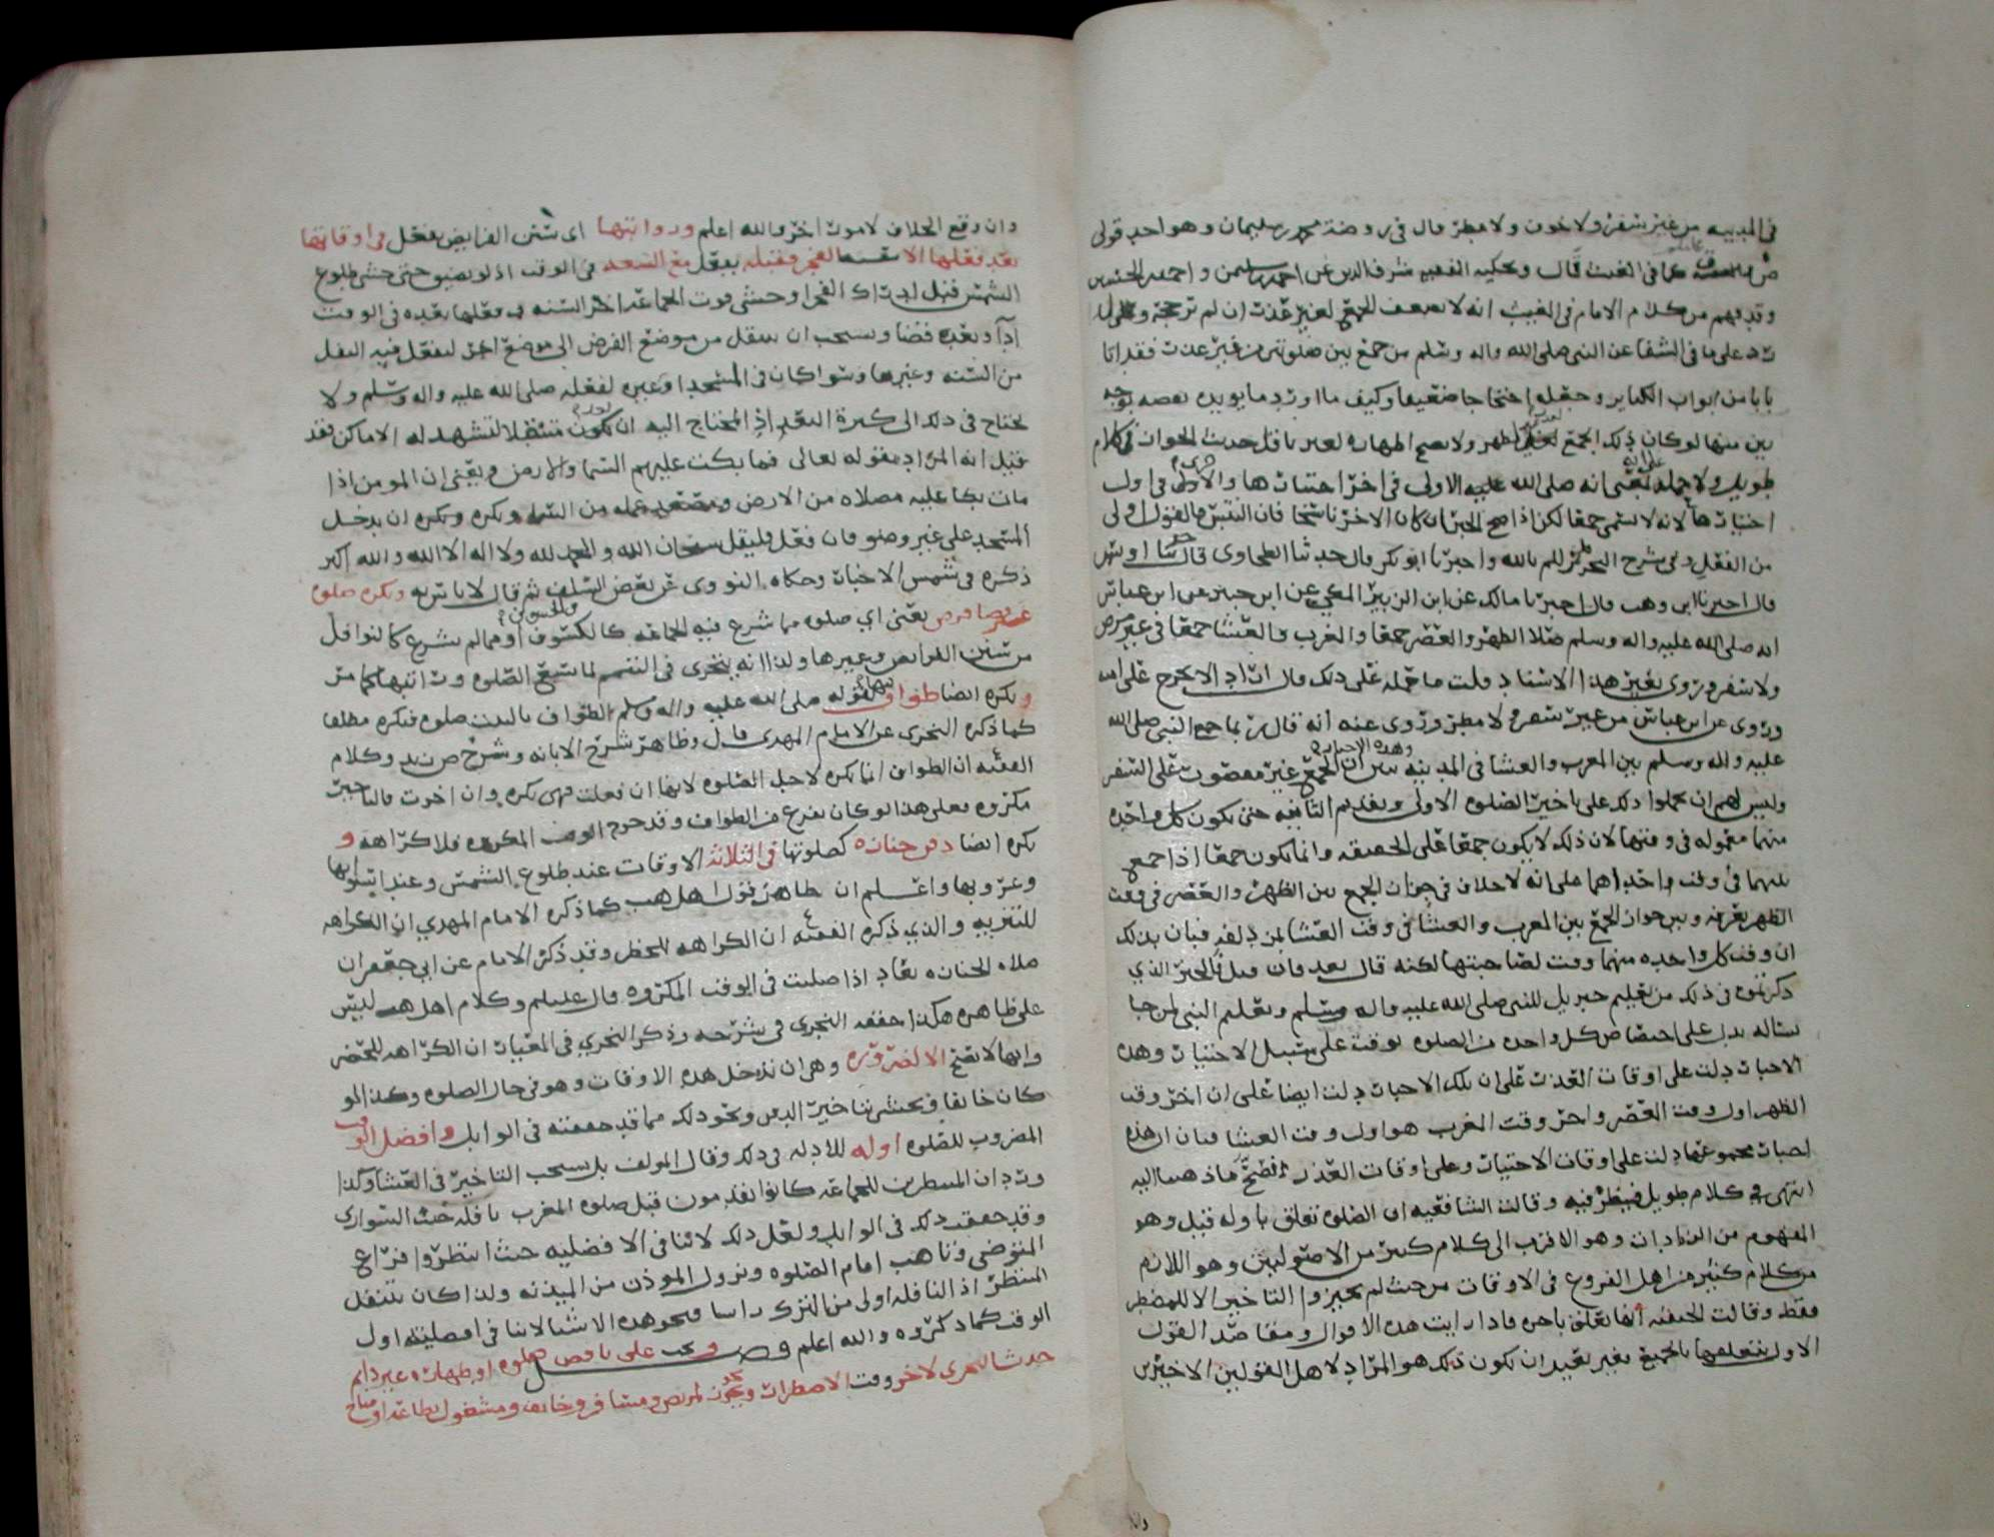 في المدينه من غير سفر ولا خوف ولا مطر قال في روضة محمد بن سليمان وهو احد قولي
كما في الغيث قال ويحكيه الفقيه شرف الدين عن احمد بن سليمن و
وقد فهم من كلام الامام في الغيث انه لا يصف الجمع لغير عذر ان لم ترجحة
رد على ما في الشفا عن النبي صلى الله واله وسلم من جمع بين صلوتين من غير عذر فقد اتا
بابا من ابواب الكباير وجعله احتجاجا ضعيفا وكيف ما اورد ما يويده بعضه
بين منها لو كان ذلك الجمع الظهر ولا يصح
طويل ولا جمله يعني انه صلى الله عليه الاولى في اخر اختيارها والاخرى في اول
اختيارها لانه لا يسمى جمعا لكن اذا صح الخبران كان الاخر ناسخا فان التبس فالقول اولى
من الفعل وفي شرح التحرير للم بالله واخبرنا ابو بكر قال حدثنا الطحاوي قال
قال اخبرنا ابن وهب قال اخبرنا مالك عن ابن الزبير المكي عن ابن جبير عن ابن عباس
انه صلى الله عليه واله وسلم صلا الظهر والعصر جمعا والمغرب والعشا جمعا في غير مرض
ولا سفر وروى بغير هذا الاسناد قلت ما حمله على ذلك قال اراد الا يحرج على امته
وروى عن ابن عباس من غير سفر ولا مطر وروى عنه انه قال ربما جمع النبي صلى الله
عليه واله وسلم بين المغرب والعشا في المدينه وهذه الاخبار ان الجمع غير مقصور على السفر
وليس لهم ان يحملوا ذلك على تاخير الصلوه الاولى وتقديم الثانيه حتى يكون كل واحده
منهما مفعوله في وقتها لان ذلك لا يكون جمعا على الحقيقه وانما يكون جمعا اذا جمع
بينهما في وقت واحداهما على انه لا خلاف في جواز الجمع بين الظهر والعصر في وقت
الظهر بعرفه وبين جواز الجمع بين المغرب والعشا في وقت العشا بمزدلفه فبان بذلك
ان وقت كل واحده منهما وقت لصاحبتها لكنه قال بعد فان قيل فالخبر الذي
ذكرتموه في ذلك من تعليم جبريل للنبي صلى الله عليه واله وسلم وتعليم النبي لمن جا
يساله يدل على اختصاص كل واحده من الصلوه بوقت على سبيل الاختيار وهذه
الاخبار دلت على اوقات العذر على ان تلك الاخبار دلت ايضا على ان اخر وقت
الظهر اول وقت العصر واخر وقت المغرب هو اول وقت العشا فبان ان هذه
الاخبار مجموعها دلت على اوقات الاختيار وعلى اوقات العذر فصح ما ذهبنا اليه
انتهى في كلام طويل فينظر فيه وقالت الشافعيه ان الصلوه تعلق باوله قيل وهو
المفهوم من الزيادات وهو الاقرب الى كلام كثير من الاصوليين وهو اللازم
من كلام كثير من اهل الفروع في الاوقات من حيث لم يجيزوا التاخير الا للمضطر
فقط وقالت الحنفيه انها تعلق باخره فاذا رايت هذه الاقوال ومقاصد القول
الاول بتعلقها بالجميع بغير تقييد ان يكون ذلك هو المراد لاهل القولين الاخيرين
وان وقع الخلاف لاموت اخر والله اعلم ورواتبها اي سنن الفرايض يفعل في اوقاتها
بعد فعلها الا سنة الفجر فقبله يفعل مع السعه في الوقت اذ لو يضيق حتى خشي طلوع
الشمس قبل ادراك الفجر او خشي فوت الجماعه اخر السنه يفعلها بعده في الوقت
اداً وبعده قضا ويستحب ان ينتقل من موضع الفرض الى موضع اخر ليفعل فيه النفل
من السنه وغيرها وسوا كان في المسجد او غيره لفعله صلى الله عليه واله وسلم ولا
يحتاج في ذلك الى كثيرة البعد اذ المحتاج اليه ان يكون منتقلا لتشهد له الاماكن فقد
قيل انه المراد بقوله تعالى فما بكت عليهم السما والارض ويعني ان المومن اذا
مات بكا عليه مصلاه من الارض ومصعد عمله من السما ويكره ان يدخل
المسجد على غير وضو فان فعل فليقل سبحان الله والحمد لله ولا اله الا الله والله اكبر
ذكره في شمس الاخبار وحكاه النووي عن بعض السلف ثم قال لا باس به ويكره صلوه
يعني اي صلوه مما شرع فيه الجماعه كالكسوف والخسوف او ممالم يشرع كالنوافل
من سنن الفرايض وغيرها ولذا انه يتحرى في التقسيم لما يتبع الصلوه ورواتبها كما مر
ويكره ايضا طواف لقوله صلى الله عليه واله وسلم الطواف بالبيت صلوه فيكره مطلقا
كما ذكره النجري عن الامام المهدي قال وظاهر شرح الابانه وشرح ض زيد وكلام
الفقيه ان الطواف انما يكره لاجل الصلوه لانها ان فعلت فهي تكره وان اخرت فالتاخير
مكروه فعلى هذا لو كان يفرغ من الطواف وقد خرج الوقت المكروه فلا كراهه و
يكره ايضا دفن جنازه كصلوتها في الثلاثه الاوقات عند طلوع الشمس وعند استوايها
وغروبها واعلم ان ظاهر قول اهل هب كما ذكره الامام المهدي ان الكراهه
للتنزيه والذي ذكره الفقيه ان الكراهه للحظر وقد ذكر الامام عن ابي جعفر ان
صلاه الجنازه تعاد اذا صليت في الوقت المكروه قال عليلم وكلام اهل هب ليس
على ظاهره هكذا حققه النجري في شرحه وذكر النجري في المعيار ان الكراهه للحضر
وانها لا تصح الا لضروره وهي ان تدخل هذه الاوقات وهو في حال الصلوه وكذا لو
كان خايفا ويخشى بتاخير الدفن ونحو ذلك مما قد حققته في الوابل وافضل الوقت
المضروب للصلوه اوله للادله في ذلك وقال المولف بل يستحب التاخير في العشا وكذا
ورد ان المنتظرين للجماعه كانوا يقدمون قبل صلوه المغرب نافله تحت السواري
وقد حققت ذلك في الوابل ولعل ذلك لا ينافي الافضليه حيث انتظروا فراغ
المتوضي وتاهب امام الصلوه ونزول الموذن من الميذنه ولذا كان يتنفل
المنتظر اذ النافله اولى من الترك راسا فنحو هذه الاشيا لا ينافي افضليته اول
الوقت كما ذكروه والله اعلم فصل ويجب على ناقص صلوه او طهاره غير دايم
التحري لاخر وقت الاضطرار ويجوز لمريض ومسافر وخايف ومشغول بطاعه او مباح